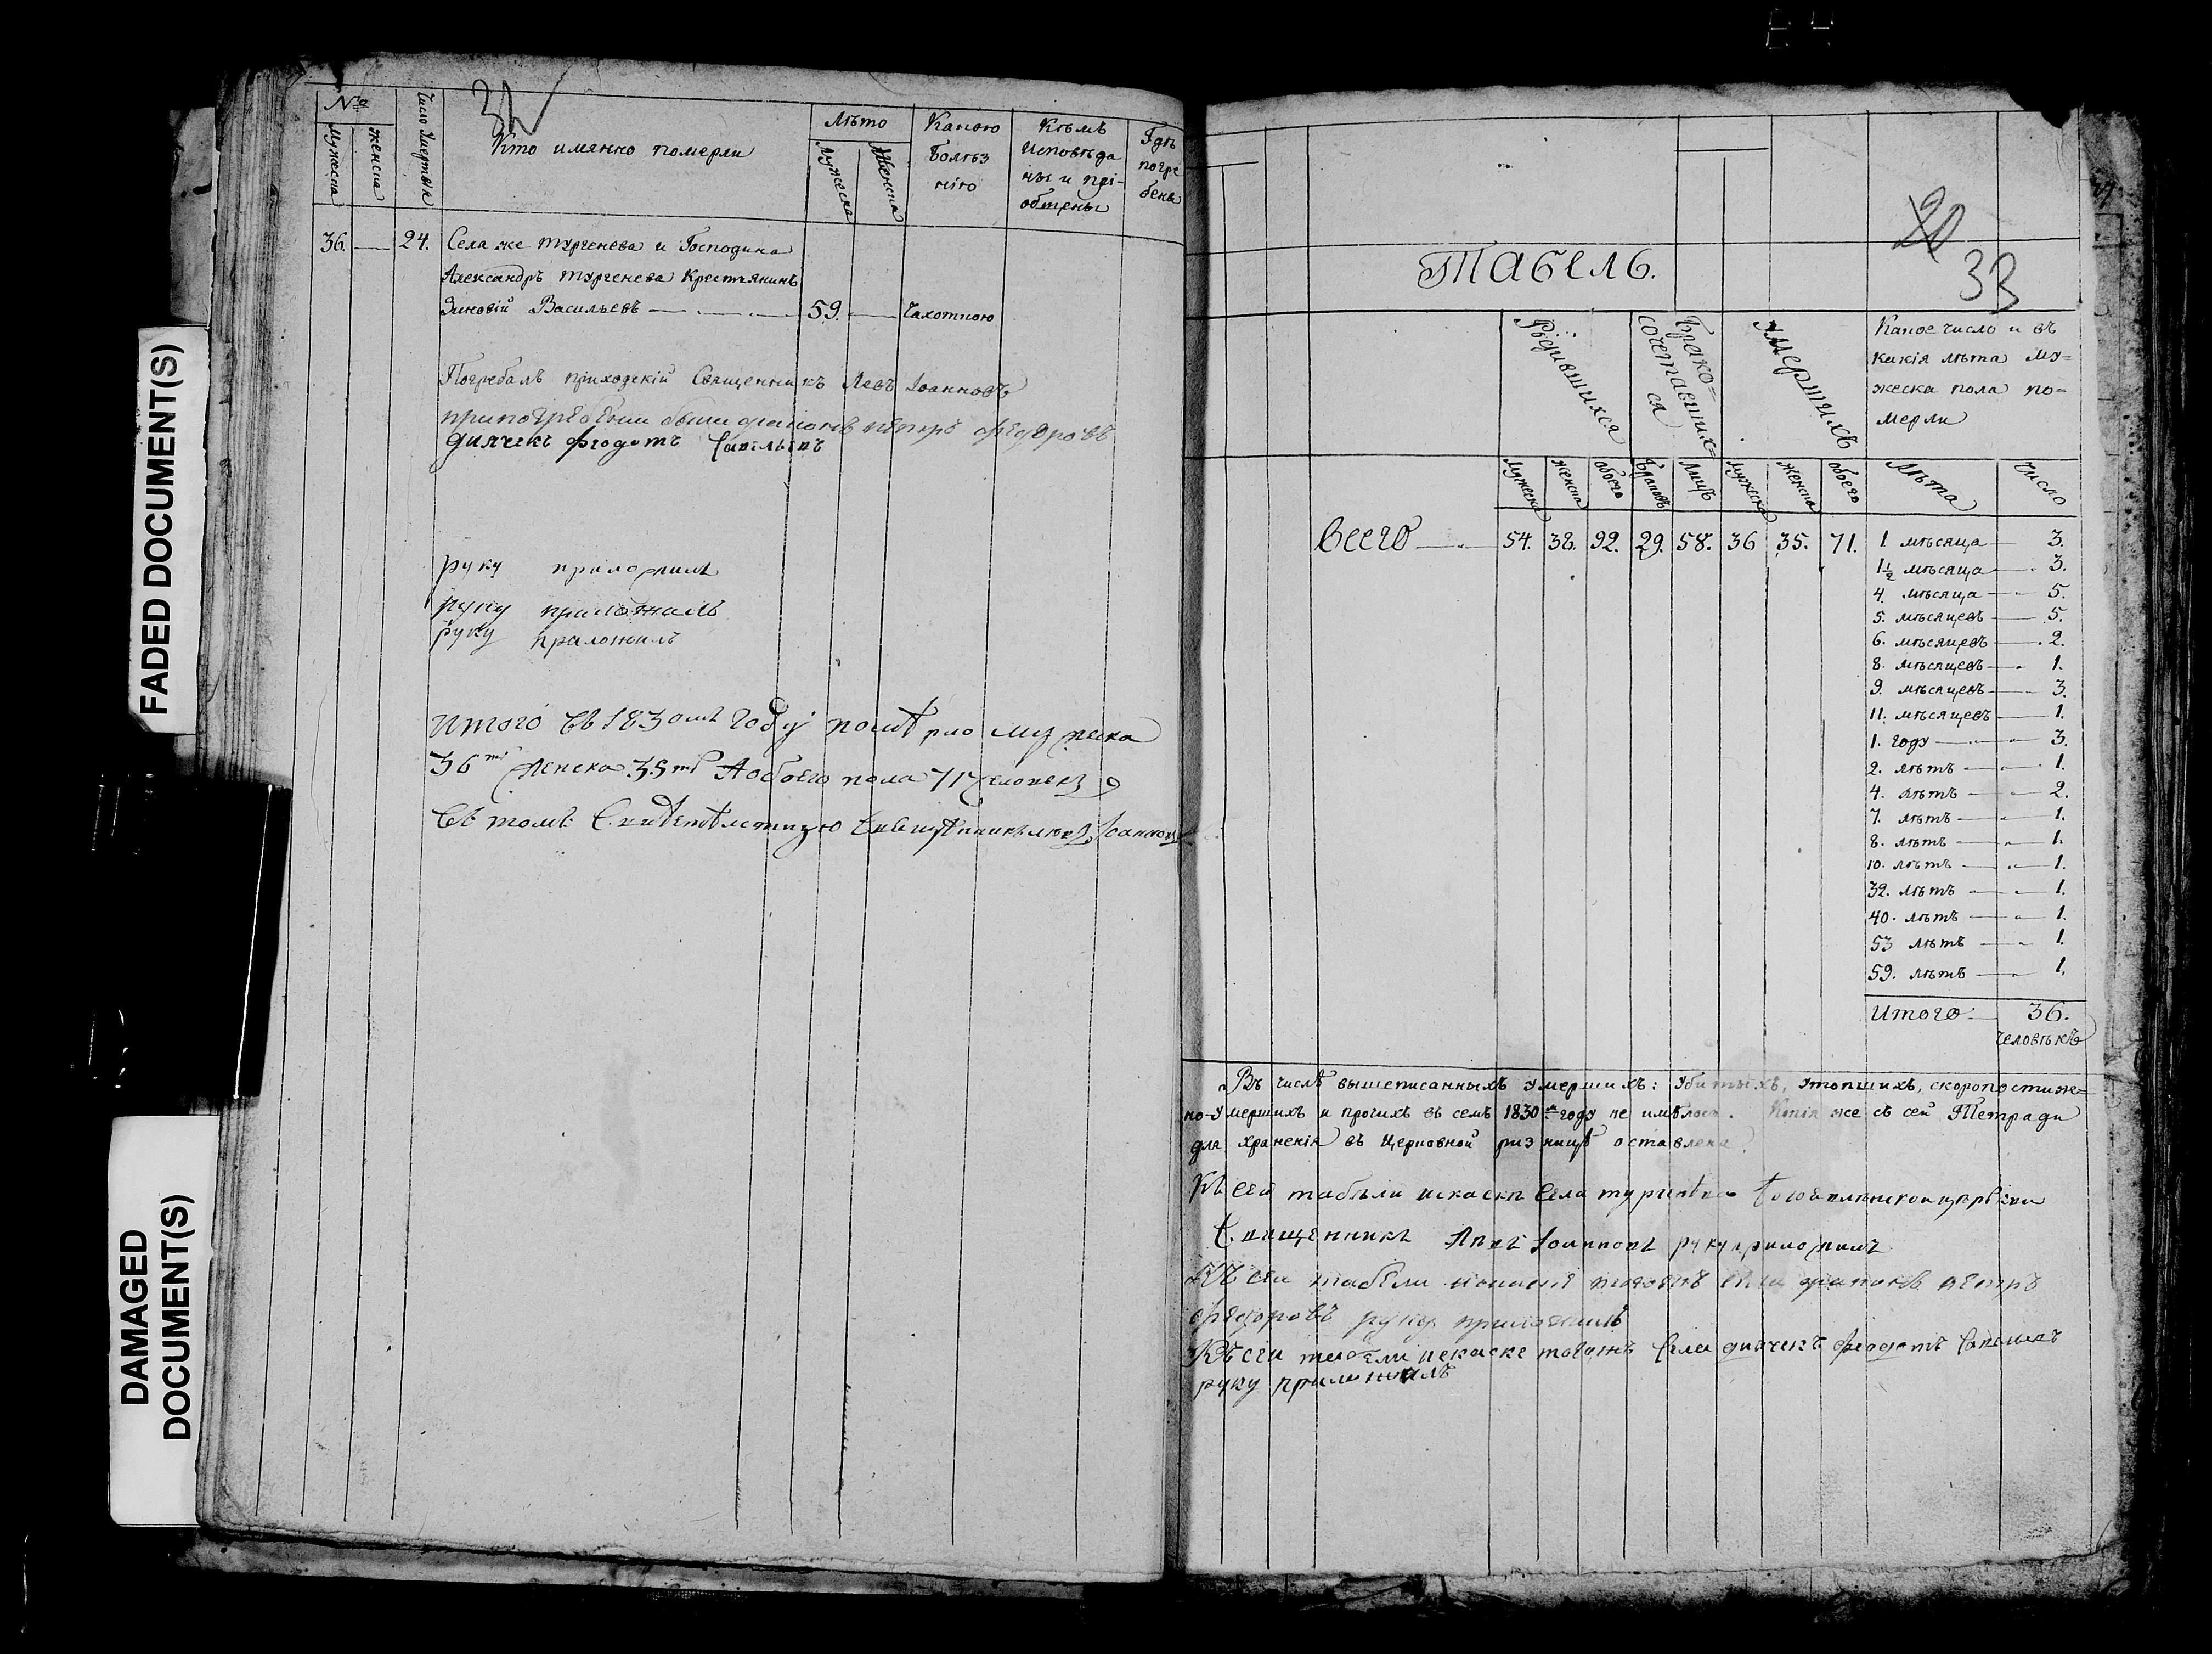 FADED DOCUMENT(S)
DAMAGED DOCUMENT(S)
№
Мужеска
Женска
Число Умертвія
32
Кто имянно померли
Лѣто
Мужеска
Женска
Какою Болѣзнію
Кѣмъ Исповѣданы и пріобщены
Гдѣ погребены
36. — 24. Села же Тургенева и Господина
Александръ Тургенева Крестьянинъ
Зиновій Васильевъ — 59. — Чахотною
Погребалъ приходскій Священникъ Левъ Іоанновъ
при погребении были диаконъ Петръ Федоровъ
дьячекъ Феодотъ
руку приложилъ
руку приложилъ
руку приложилъ
Итого въ 1830мъ Году помѣрло мужеска
36ть женска 35ть А обоего пола 71 человекъ
Въ томъ Свидѣтельствую Священникъ Левъ Іоанновъ
20
33
Табель.
Родившихся
Бракосочетавшихся
Умершихъ
Какое число и въ
какія лѣта му=
жеска пола по=
мерли
Мужеска
Женска
обоего
Браковъ
Лицъ
Мужеска
Женска
обоего
Лѣта
Число
Всего — 54. 38. 92. 29. 58. 36 35. 71.
1 мѣсяца — 3.
1½ мѣсяца — 3.
4. мѣсяца — 5.
5. мѣсяцевъ — 5.
6. мѣсяцевъ — 2.
8. мѣсяцевъ — 1.
9. мѣсяцевъ — 3.
11. мѣсяцевъ — 1.
1. году — 3.
2. лѣтъ — 1.
4. лѣтъ — 2.
7. лѣтъ — 1.
8. лѣтъ — 1.
10. лѣтъ — 1.
32. лѣтъ — 1.
40. лѣтъ — 1.
53 лѣтъ — 1.
59. лѣтъ — 1.
Итого — 36.
человѣкъ
Въ числѣ вышеписанныхъ умершихъ: Убитыхъ, утопшихъ, скоропостиж=
но-умершихъ и прочихъ въ семъ 1830м году не имѣлось. Копія же съ сей Тетради
для храненія въ Церковной ризницѣ оставлена.
Къ сей табели Села Тургенева церкви
Священникъ Левъ Іоанновъ руку приложилъ
Къ сеи табели села диаконъ Петръ
Федоровъ руку приложилъ
Къ сеи табели тогожъ Села дьячекъ Феодотъ
руку приложилъ